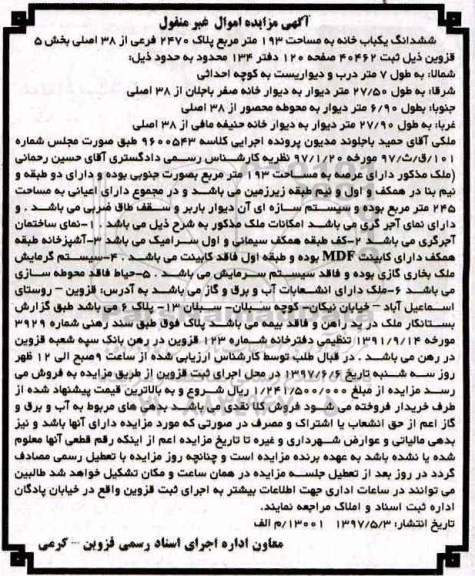 آگهی مزایده اموال غیر منقول
ششدانگ یکباب خانه به مساحت ۱۹۳ متر مربع پلاک ۲۴۷۰ فرعی از ۳۸ اصلی بخش ۵
قزوین ذیل ثبت ۴۰۴۶۲ صفحه ۱۲۰ دفتر ۱۳۴ محدود به حدود ذیل:
شمالا: به طول ۷ متر درب و دیواریست به کوچه احداثی
شرقا: به طول ۲۷/۵۰ متر دیوار به دیوار خانه صفر باجلان از ۳۸ اصلی
جنوبا: بطول ۶/۹۰ متر دیوار به محوطه محصور از ۳۸ اصلی
غربا: به طول ۲۷/۹۰ متر دیوار به دیوار خانه حنیفه مافی از ۳۸ اصلی
ملکی آقای حمید باجلوند مدیون پرونده اجرایی کلاسه ۹۶۰۰۵۴۳ طبق صورت مجلس شماره
۱۰۱/ق/ث/۹۷ مورخه ۹۷/۱/۲۰ نظریه کارشناس رسمی دادگستری آقای حسین رحمانی
(ملک مذکور دارای عرصه به مساحت ۱۹۳ متر مربع بصورت جنوبی بوده و دارای دو طبقه و
نیم بنا در همکف و اول و نیم طبقه زیرزمین می باشد و در مجموع دارای اعیانی به مساحت
۲۴۵ متر مربع بوده و سیستم سازه ای آن دیوار باربر و سقف طاق ضربی می باشد . و
دارای نمای آجر گری می باشد امکانات ملک مذکور به شرح ذیل می باشد . ۱-نمای ساختمان
آجرگری می باشد ۲-کف طبقه همکف سیمانی و اول سرامیک می باشد ۳-آشپزخانه طبقه
همکف دارای کابینت MDF بوده و طبقه اول فاقد کابینت می باشد . ۴-سیستم گرمایش
ملک بخاری گازی بوده و فاقد سیستم سرمایش می باشد . ۵-حیاط فاقد محوطه سازی
می باشد ۶-ملک دارای انشعابات آب و برق و گاز می باشد به آدرس: قزوین – روستای
اسماعیل آباد – خیابان نیکان- کوچه سبلان- سبلان ۱۳- پلاک ۶ می باشد طبق گزارش
بستانکار ملک در ید راهن و فاقد بیمه می باشد پلاک فوق طبق سند رهنی شماره ۳۹۲۹
مورخه ۱۳۹۱/۹/۱۴ تنظیمی دفترخانه شماره ۱۲۳ قزوین در رهن بانک سپه شعبه قزوین
در رهن می باشد . در قبال طلب توسط کارشناس ارزیابی شده از ساعت ۹ صبح الی ۱۲ ظهر
روز سه شنبه تاریخ ۱۳۹۷/۶/۶ در محل اجرای ثبت قزوین از طریق مزایده به فروش می
رسد مزایده از مبلغ ۱/۲۴۱/۵۰۰/۰۰۰ ریال شروع و به بالاترین قیمت پیشنهاد شده از
طرف خریدار فروخته می شود فروش کلا نقدی می باشد بدهی های مربوط به آب و برق و
گاز اعم از حق انشعاب یا اشتراک و مصرف در صورتی که مورد مزایده دارای آنها باشد و نیز
بدهی مالیاتی و عوارض شهرداری و غیره تا تاریخ مزایده اعم از اینکه رقم قطعی آنها معلوم
شده یا نشده باشد به عهده برنده مزایده است و چنانچه روز مزایده با تعطیل رسمی مصادف
گردد در روز بعد از تعطیل جلسه مزایده در همان ساعت و مکان تشکیل خواهد شد طالبین
می توانند در ساعات اداری جهت اطلاعات بیشتر به اجرای ثبت قزوین واقع در خیابان پادگان
اداره ثبت اسناد و املاک مراجعه نمایند.
تاریخ انتشار: ۱۳۹۷/۵/۳ ۱۳۰۰۱/م الف
معاون اداره اجرای اسناد رسمی قزوین – کرمی